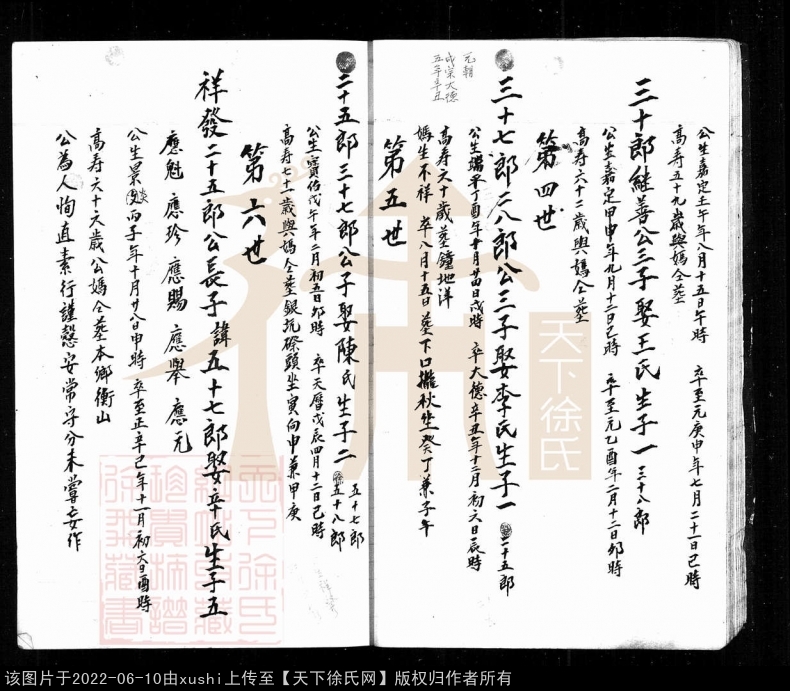 公生嘉定壬午年八月十五日午時 卒至元庚申年七月二十一日己時
高寿五十九歲與媽仝塟
三十郎継善公三子娶王氏生子一 三十八郎
公生嘉定甲申年九月十二日己時 卒至元乙酉年二月十二日卯時
高寿六十二歲與媽仝塟
第四世
元朝
成宗大德
五年辛丑
三十七郎二八郎公三子娶李氏生子一 二十五郎
公生端平丁酉年 月 日戌時 卒大德辛丑年十二月初六日辰時
高寿六十歲塟鐘地洋
媽生不祥 卒八月十五日塟下口 秋坐癸丁兼子午
第五世
二十五郎三十七郎公子娶陳氏生子二 五十七郎 五十八郎
公生寶佑戊午年二月初五日卯時 卒天曆戊辰四月十二日己時
高寿七十一歲與媽仝塟銀坑磜頭坐寅向申兼甲庚
第六世
祥發二十五郎公長子諱五十七郎娶辛氏生子五
應魁 應珍 應賜 應舉 應元
公生景炎丙子年十月廿八日申時 卒至正辛己年十一月初六日酉時
高寿六十六歲公媽仝塟本鄉衡山
公為人恂直素行謹愨安常守分未嘗妄作
徐
天下徐氏
该图片于2022-06-10由xushi上传至【天下徐氏网】版权归作者所有